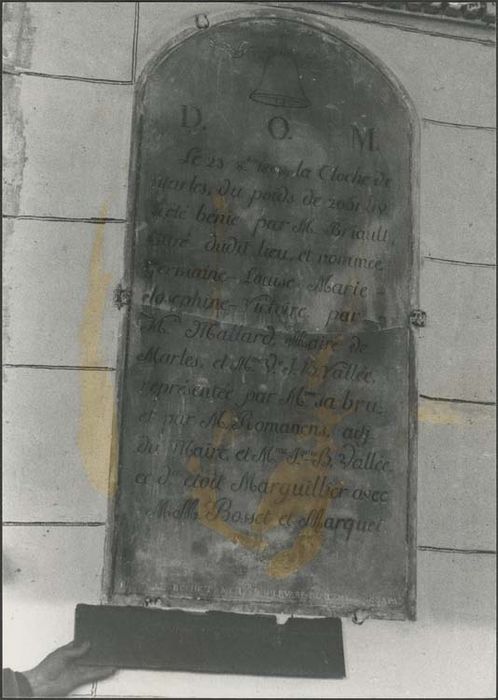 D. O. M.
Le 23 la Cloche de
Marles, du poids de 2061
été bénie par M. Briault,
Curé dudit lieu, et nommée
Germaine - Louise - Marie -
Josephine - Victoire, par
Mallard, Maire de
Marles, et Vallée,
représentée par sa bru,
et par M. Romanens, adj.
du Maire, et B. Vallée,
et étoit Marguillier avec
MM. Bosset et Marquet